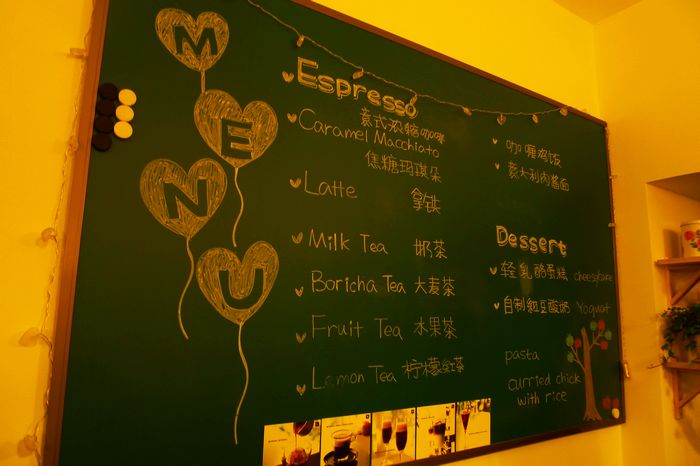 MENU
Espresso
意式浓缩咖啡
Caramel Macchiato
焦糖玛琪朵
Latte 拿铁
Milk Tea 奶茶
Boricha Tea 大麦茶
Fruit Tea 水果茶
Lemon Tea 柠檬红茶
咖喱鸡饭
意大利肉酱面
Dessert
轻乳酪蛋糕 cheesecake
自制红豆酸奶 Yogurt
pasta
curried chick
with rice